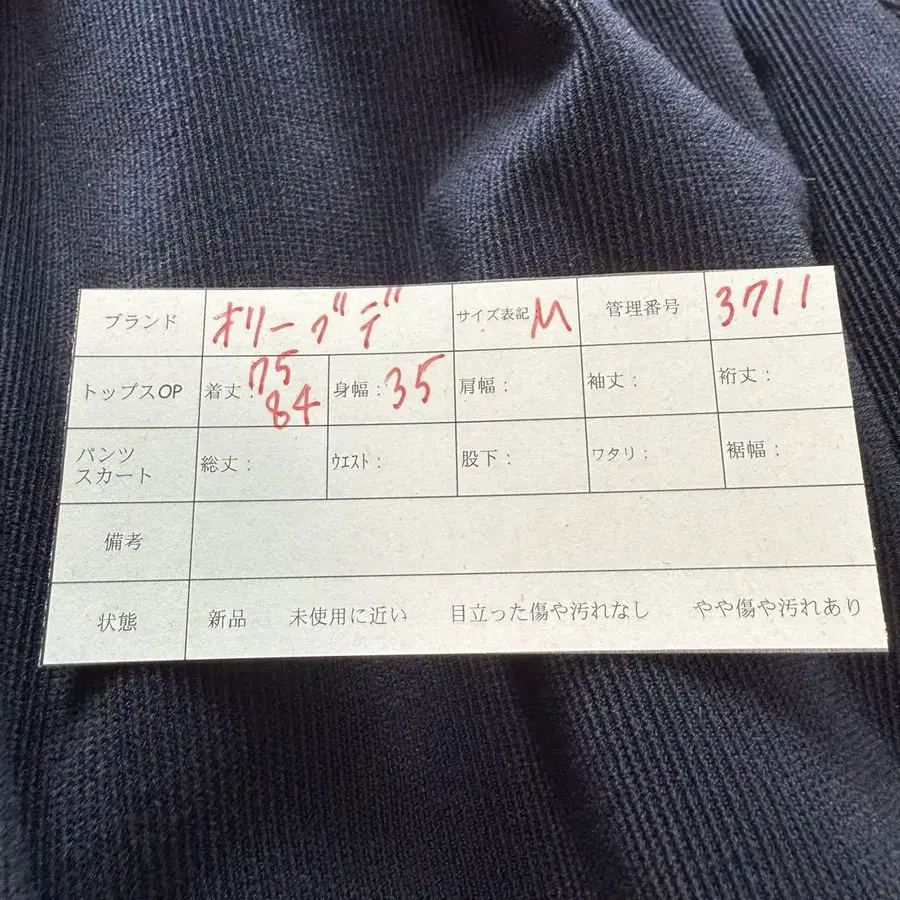 ブランド オリーブデ サイズ表記 M 管理番号 3711
トップスOP 着丈: 75 84 身幅: 35 肩幅: 袖丈: 裄丈:
パンツ スカート 総丈: ウエスト: 股下: ワタリ: 裾幅:
備考
状態 新品 未使用に近い 目立った傷や汚れなし やや傷や汚れあり